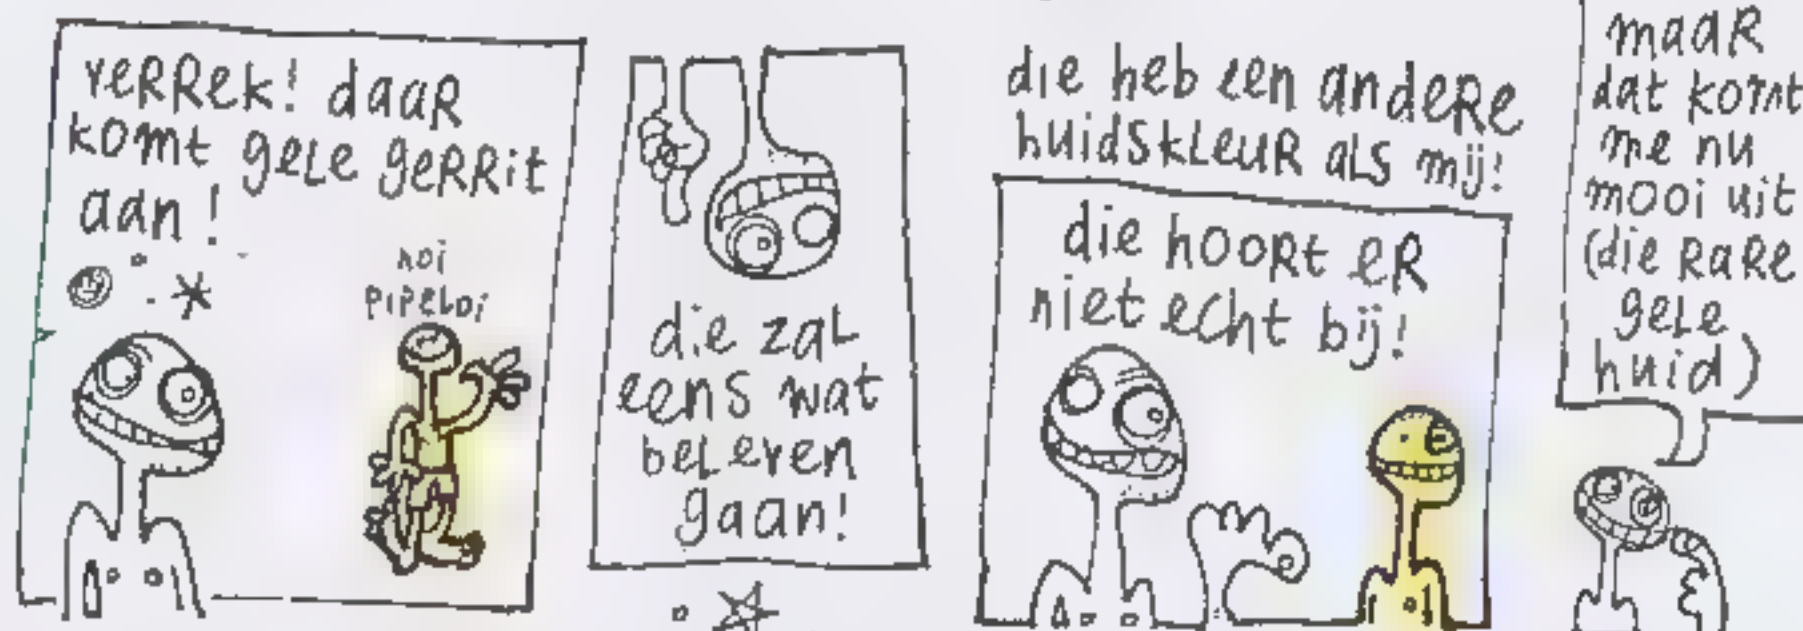 verrek! daar
komt gele gerrit
aan!
hoi
pipeloi
die zal
eens wat
beleven
gaan!
die heb een andere
huidskleur als mij!
die hoort er
niet echt bij!
maar
dat komt
me nu
mooi uit
(die rare
gele
huid)